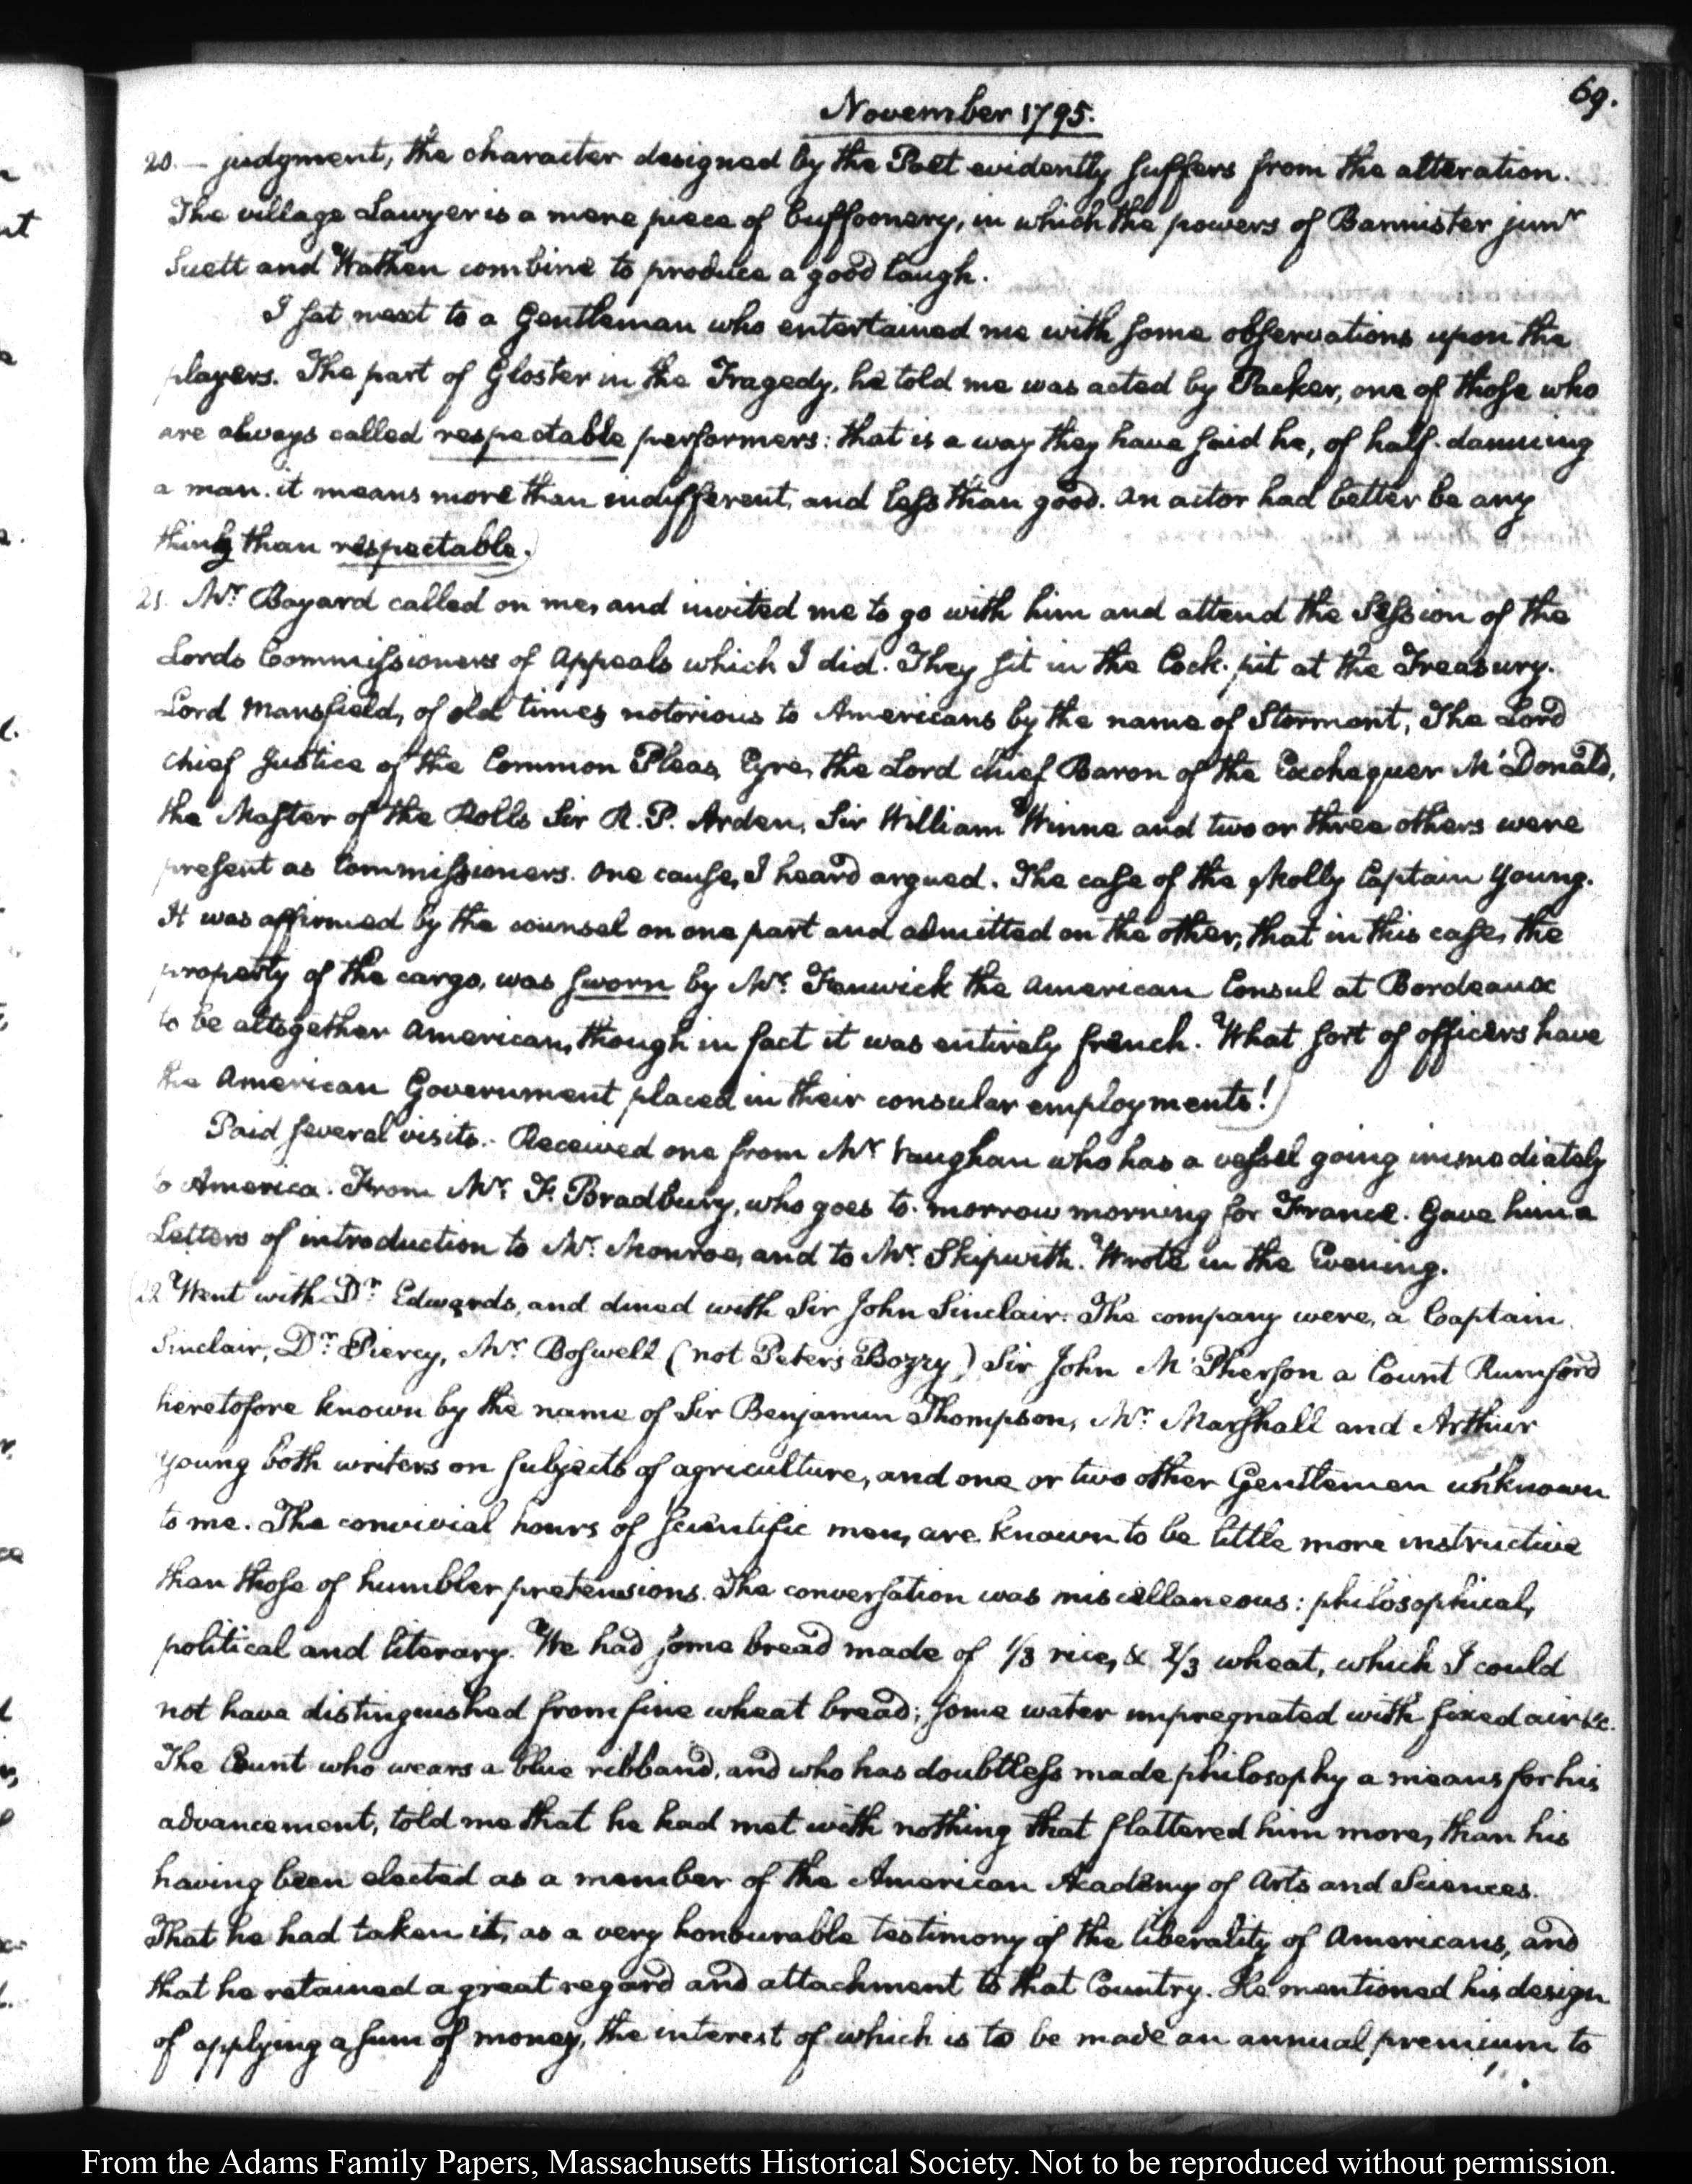 69.
November 1795.
20. — judgment, the character designed by the Poet evidently suffers from the alteration.
The village Lawyer is a mere piece of buffoonery, in which the powers of Bannister junr
Suett and Wathen combine to produce a good laugh.
I sat next to a Gentleman who entertained me with some observations upon the
players. The part of Gloster in the Tragedy, he told me was acted by Packer, one of those who
are always called respectable performers: that is a way they have said he, of half-damning
a man. it means more than indifferent, and less than good. An actor had better be any
thing than respectable.)
21. Mr. Bayard called on me, and invited me to go with him and attend the Session of the
Lords Commissioners of Appeals which I did. They sit in the Cock-pit at the Treasury.
Lord Mansfield, of old times notorious to Americans by the name of Stormont, The Lord
Chief Justice of the Common Pleas, Eyre, the Lord Chief Baron of the Exchequer McDonald,
the Master of the Rolls Sir R. P. Arden, Sir William Winne and two or three others were
present as Commissioners. One cause, I heard argued. The case of the Molly Captain Young.
It was affirmed by the counsel on one part and admitted on the other, that in this case, the
property of the cargo, was sworn by Mr. Fenwick the American Consul at Bordeaux
to be altogether American, though in fact it was entirely french. What sort of officers have
the American Government placed in their consular employments!)
Paid several visits. - Received one from Mr. Vaughan who has a vessel going immediately
to America. From Mr. F. Bradbury, who goes to-morrow morning for France. Gave him a
Letters of introduction to Mr. Monroe, and to Mr. Skipwith. Wrote in the Evening.
(22 Went with Dr. Edwards, and dined with Sir John Sinclair. The company were, a Captain
Sinclair, Dr. Piercy, Mr. Boswell (not Peter's Bozzy) Sir John McPherson a Count Rumford
heretofore known by the name of Sir Benjamin Thompson, Mr. Marshall and Arthur
Young both writers on subjects of agriculture, and one or two other Gentlemen unknown
to me. The convivial hours of scientific men, are known to be little more instructive
than those of humbler pretensions. The conversation was miscellaneous: philosophical,
political and literary. We had some bread made of 1/3 rice, & 2/3 wheat, which I could
not have distinguished from fine wheat bread; some water impregnated with fixed air &c.
The Count who wears a blue ribband, and who has doubtless made philosophy a means for his
advancement, told me that he had met with nothing that flattered him more, than his
having been elected as a member of the American Academy of Arts and Sciences.
That he had taken it, as a very honourable testimony of the liberality of Americans, and
that he retained a great regard and attachment to that Country. He mentioned his design
of applying a sum of money, the interest of which is to be made an annual premium to
From the Adams Family Papers, Massachusetts Historical Society. Not to be reproduced without permission.